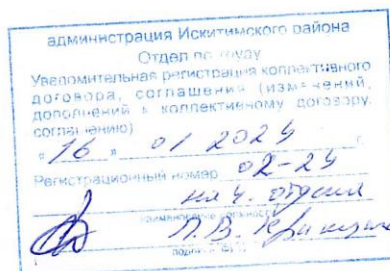 администрация Искитимского района
Отдел по труду
Уведомительная регистрация коллективного
договора, соглашения (изменений,
дополнений к коллективному договору,
соглашению)
"16" 01 2024
Регистрационный номер 02-24
нач. отдела
наименование должности
Л.В.
подпись